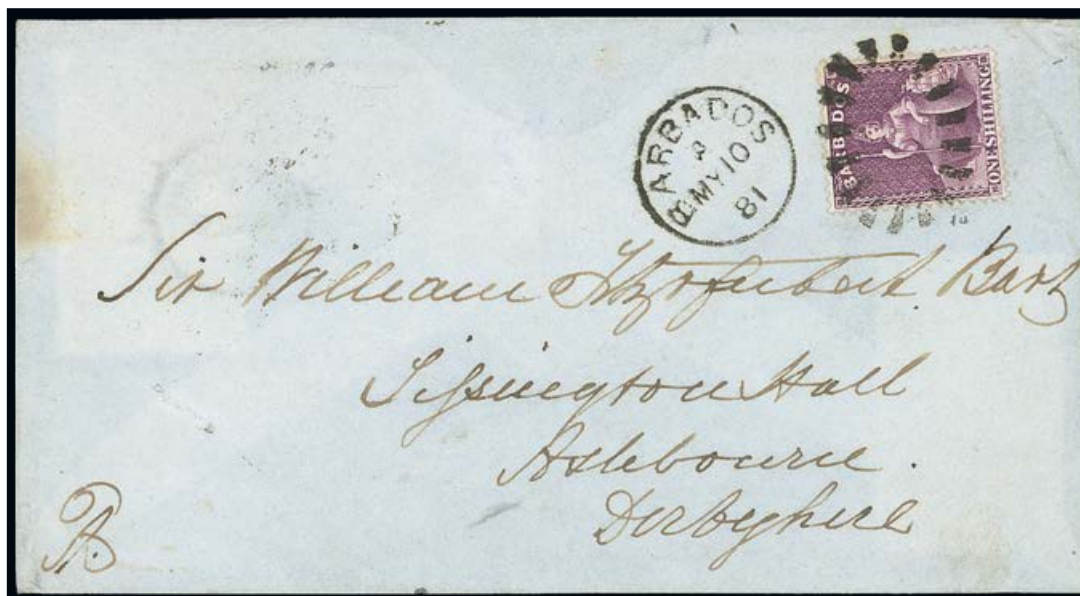 BARBADOS
ONE SHILLING
BARBADOS
MY 10
81
Sir William Fitzherbert Bart
Tissington Hall
Ashbourne.
Derbyshire